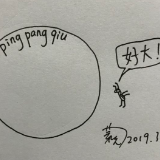 ping pang qiu
好大!
2019.1